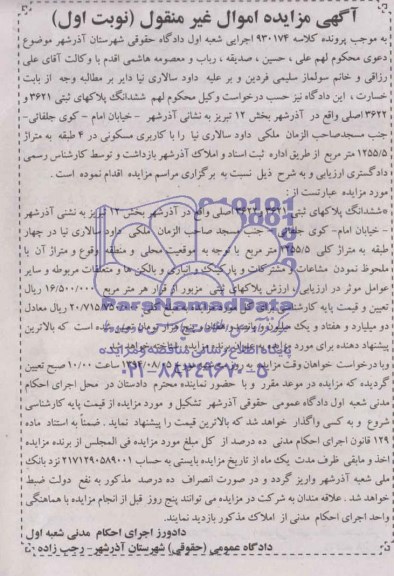 آگهی مزایده اموال غیر منقول (نوبت اول)
به موجب پرونده کلاسه ۹۳۰۱۷۴ اجرایی شعبه اول دادگاه حقوقی شهرستان آذرشهر موضوع
دعوی محکوم لهم علی ، حسین ، صدیقه ، رباب و معصومه هاشمی اقدم با وکالت آقای علی
رزاقی و خانم سولماز سلیمی فردین و بر علیه داود سالاری نیا دایر بر مطالبه وجه از بابت
خسارت ، این دادگاه نیز حسب درخواست وکیل محکوم لهم ششدانگ پلاکهای ثبتی ۳۶۲۱ و
۳۶۲۲ اصلی واقع در آذرشهر بخش ۱۲ تبریز به نشانی آذرشهر - خیابان امام - کوی جلفائی-
جنب مسجدصاحب الزمان ملکی داود سالاری نیا را با کاربری مسکونی در ۴ طبقه به متراژ
۱۲۵۵/۵ متر مربع از طریق اداره ثبت اسناد و املاک آذرشهر بازداشت و توسط کارشناس رسمی
دادگستری ارزیابی و به شرح ذیل نسبت به برگزاری مراسم مزایده اقدام نموده است .
مورد مزایده عبارتست از :
*ششدانگ پلاکهای ثبتی ۳۶۲۱ و ۳۶۲۲ اصلی واقع در آذرشهر بخش ۱۲ تبریز به نشنی آذرشهر
- خیابان امام- کوی جلفائی - جنب مسجد صاحب الزمان ملکی داود سالاری نیا در چهار
طبقه به متراژ کلی ۱۲۵۵/۵ متر مربع با توجه به موقعیت محلی و منطقه وقوع و متراژ آن با
ملحوظ نمودن مشاعات و مشترکات و پارکینگ و انباری و بالکن ها و متعلقات مربوطه و سایر
عوامل موثر در ارزیابی و ارزش پلاکهای ثبتی مزبور از قرار هر متر مربع ۱۶/۵۰۰/۰۰۰ ریال
تعیین و قیمت پایه کارشناسی برای کل مورد مزایده به مبلغ کلی ریال معادل
دو میلیارد و هفتاد و یک میلیون و پانصد و هفتاد و پنج هزار تومان تعیین شده است که بالاترین
پیشنهاد دهنده برای مورد مزایده به عنوان برنده مزایده شناخته خواهد شد .
وبا درخواست خواهان وقت مزایده به روز ساعت ۱۰/۰۰ صبح تعیین
گردیده که مزایده در موعد مقرر و با حضور نماینده محترم دادستان در محل اجرای احکام
مدنی شعبه اول دادگاه عمومی حقوقی آذرشهر تشکیل و مورد مزایده از قیمت پایه کارشناسی
شروع و به کسی واگذار خواهد شد که بالاترین قیمت را پیشنهاد نماید . ضمناً به استناد ماده
۱۲۹ قانون اجرای احکام مدنی ده درصد از کل مبلغ مورد مزایده فی المجلس از برنده مزایده
اخذ و مابقی ظرف مدت یک ماه از تاریخ مزایده بایستی به حساب ۲۱۷۱۲۹۰۵۸۹۰۰۱ نزد بانک
ملی شعبه آذرشهر واریز گردد و در صورت انصراف ده درصد مذکور به نفع دولت ضبط
خواهد شد . علاقه مندان به شرکت در مزایده می توانند پنج روز قبل از انجام مزایده با هماهنگی
واحد اجرای احکام مدنی از املاک مذکور بازدید نمایند.
دادورز اجرای احکام مدنی شعبه اول
دادگاه عمومی (حقوقی) شهرستان آذرشهر- رجب زاده
ParsNamadData
پایگاه اطلاع رسانی مناقصه و مزایده
۰۲۱-۸۸۳۴۹۶۷۰-۵